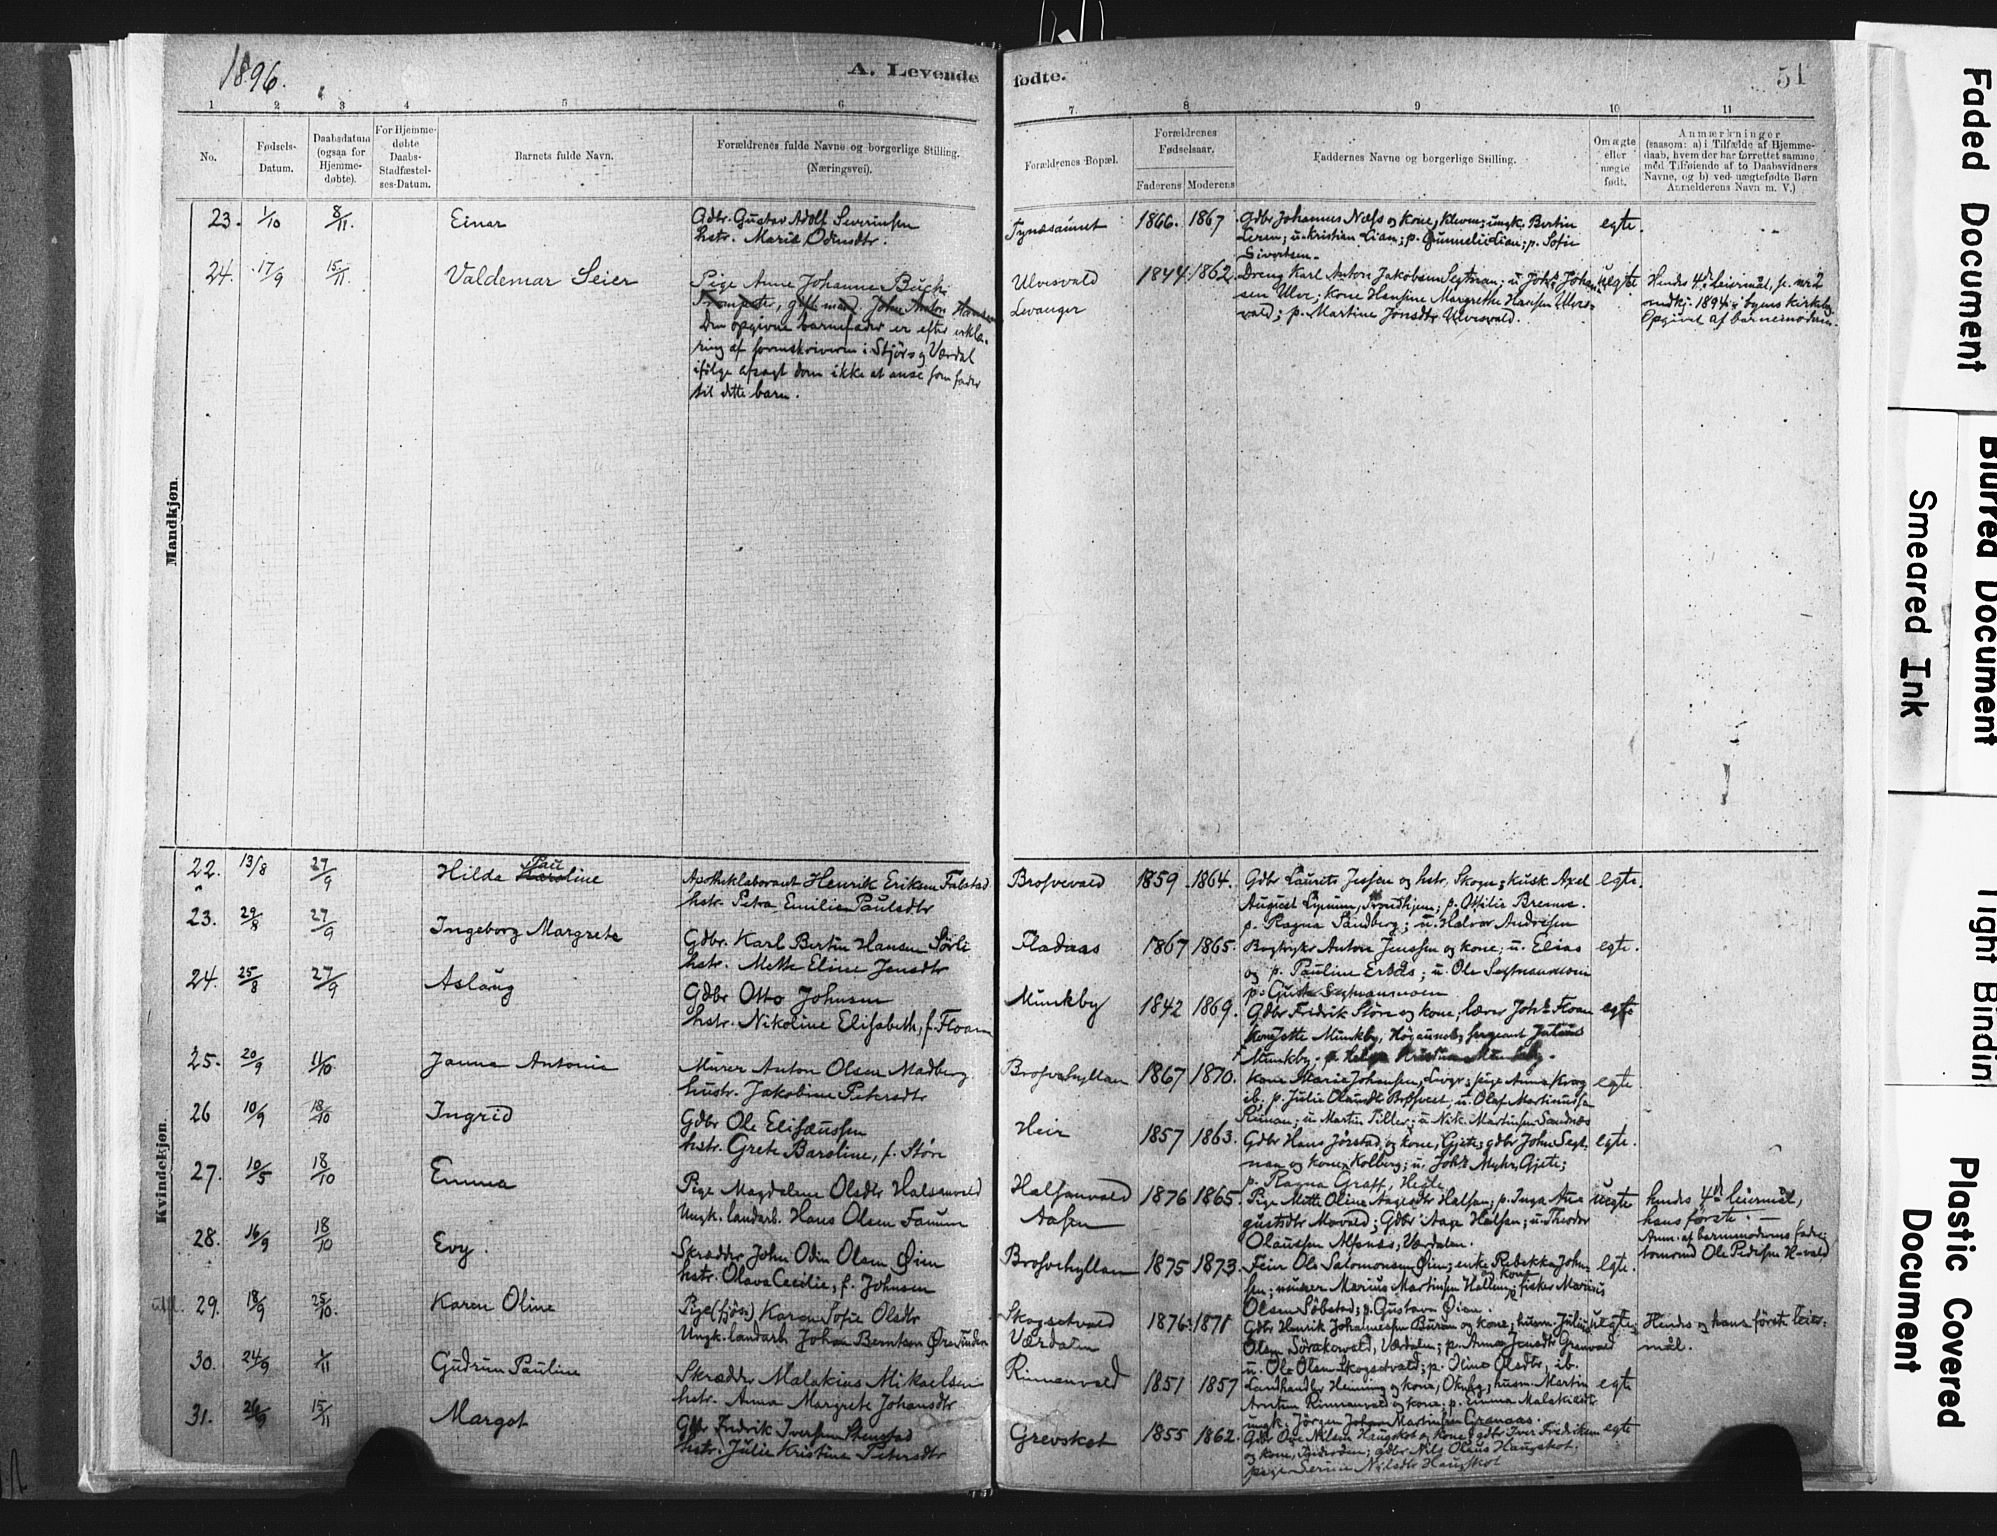 1896.
A. Levende fødte.
51
1 2 3 4 5 6 7. 8 9 10 11
No.
Fødsels-
Datum.
Daabsdatum
(ogsaa for
Hjemme-
døbte).
For Hjemme-
døbte
Daabs-
Stadfæstel-
ses-Datum.
Barnets fulde Navn.
Forældrenes fulde Navne og borgerlige Stilling.
(Næringsvei).
Forældrenes Bopæl.
Forældrenes
Fødselsaar.
Faderens Moderens
Faddernes Navne og borgerlige Stilling.
Om ægte
eller
uægte
født.
Anmærkninger
(saasom: a) i Tilfælde af Hjemme-
daab, hvem der har forrettet samme,
med Tilføiende af to Daabsvidners
Navne, og b) ved uægtefødte Børn
Anmelderens Navn m. V.)
Mandkjøn.
23. 1/10 8/11. Einar
Gdbr. Gustav Adolf Severinsen
hstr. Marie Odinsdtr.
Tynæsaunet 1866. 1867
Gdbr Johannes Næss og kone, Kleven; ungk. Bertin
Leren; u. Kristian Lian; p. Gunnelie Lian; p. Sofie
Sivertsen.
egte.
24. 17/9 15/11. Valdemar Seier
Pige Anne Johanne Buch
Trompeter, gift mand John Anton Hansen
Den opgivne barnefader er efter erklæ-
ring af sorenskriveren i Stjørs og Værdal
ifølge afsagt dom ikke at anse som fader
til dette barn.
Ulvesvald
Levanger
1844. 1862.
Dreng Karl Anton Jakobsen Segtnan; u. Johs. Johan-
sen Ulve; kone Hansine Margrethe Hansen Ulves-
vald; p. Martine Jonsdtr Ulvesvald.
uegte
Hendes 4de leiermål, p. nr 2
mdkj. 1894 i byens kirkebog.
Opgivet af barnemoderen.
Kvindekjøn.
22. 13/8 27/9 Hilda Karoline
Pau
Apotheklaborant Henrik Eriksen Falstad
hstr. Petra Emilie Paulsdtr
Brosvevald 1859 1864.
Gdbr Laurits Jessen og hstr, Skogn; kusk Axel
August Lynum, Trondhjem; p. Otilie Breme.
p. Ragna Sandberg; u. Halvor Andresen
egte.
23. 29/8 27/9 Ingeborg Margrete
Gdbr. Karl Bertin Hansen Sørli
hstr. Mette Eline Jensdtr
Fladaas 1867 1865.
Bogtrykr Anton Jenssen og kone; u. Elias
og p. Pauline Erdås; u. Ole Segtnanmoen
p. Gusta Segtnanmoen
egte.
24. 25/8 27/9 Aslaug
Gdbr Otto Johnsen
hstr. Nikoline Elisabeth, f. Floan
Munkby 1842 1869.
Gdbr Fredrik Støre og kone; lærer Johs. Floan
kone Jette Munkby, sergeant Julius
Munkby. p. Helga Kristine Munkby.
egte
25. 20/9 11/10 Janna Antonie
Murer Anton Olsen Madberg
hustr. Jakobine Petersdtr
Brosvehyllan 1867 1870.
Kone Marie Johansen, Levgr; pige Anna Krog
ib; p. Julie Olausdtr Brosveet; u. Olaf Martinussen
Rinnan; u. Martin Tiller; u. Nik. Martinsen Sandnæs
egte
26 10/9 18/10 Ingrid
Gdbr Ole Elisæussen
hstr. Grete Baroline, f. Støre
Heir 1857 1863.
Gdbr Hans Jørstad og kone, Gjete; gdbr John Segt-
nan og kone Kolberg; u. Johs. Myhr, Gjete;
p. Ragna Graff, Hegle
egte.
27. 10/5 18/10 Emma
Pige Magdalene Olsdtr Halsanvald
Ungk. landarb. Hans Olsen Fanum
Halsanvald
Aasen
1876 1865.
Pige Mette Oline Aagesdtr Halsan; p. Inga Au-
gustsdtr Movald; Gdbr Aage Halsan; u. Theodor
Olaussen Alfnæs, Værdalen.
uegte
hendes 4de leiermål,
hans første. —
Anm. af barnemoderens fader
Ole Pedersen H.vald
28. 16/9 18/10 Evy.
Skrædder John Odin Olsen Øien
hstr. Olava Cecilie, f. Johnsen
Brosvehyllan 1875 1873.
Feier Ole Salomonsen Øien; enke Rebekka John-
sen; murer Marius Martinsen Hallem og kone; fisker Marius
Olsen Søbstad; p. Gustava Øien.
egte.
29. 18/9 25/10. Karen Oline
Pige (fjøs) Karen Sofie Olsdtr
Ungk. landarb. Johan Berntsen Ørevinden
Skogsetvald
Værdalen
1876. 1871
Gdbr Henrik Johannessen Buran og kone; husm. Julius
Olsen Søråkervald, Værdalen; p. Anna Jensdtr Granvald
u. Ole Olsen Skogsetvald; p. Oline Olsdtr, ib.
uegte
Hendes og hans første leier-
mål.
30. 24/9 1/11 Gudrun Pauline
Skrædder Malakias Mikaelsen
hstr. Anna Margrete Johansdtr
Rinnanvald 1851 1857
Landhandler Henning og kone, Okkby; husm. Martin
Arntsen Rinnanvald og kone; p. Emma Malakiasdtr
ungk. Jørgen Johan Martinsen Granaas.
egte
31. 26/9 15/11 Margot
Gdbr Fredrik Iversen Stenstad
hstr. Julie Kristine Petersdtr
Grevskot 1855 1862.
Gdbr Ove Nilsen Haugskot og kone; gdbr Iver Fredriksen
og kone; gdbr Nils Olaus Haugskot;
pige Serine Nilsdtr Haugskot
egte
Faded Document
Blurred Document
Smeared Ink
Tight Bindin
Plastic Covered
Document